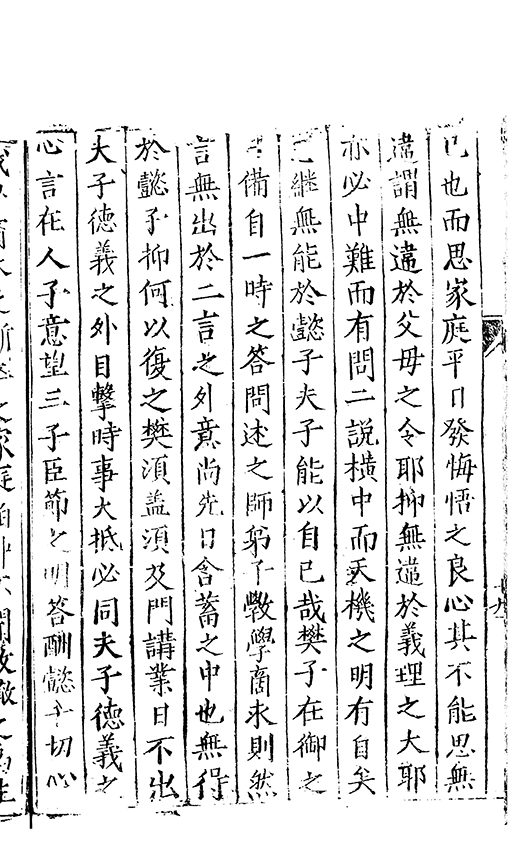 已也而思家庭平日發悔悟之良心其不能思無
違謂無違於父母之令耶抑無違於義理之大耶
亦必中難而有問二說橫中而天機之明有自矣
繼無能於懿子夫子能以自已哉樊子在御之
備自一時之答問述之師弟子斆學商求則然
言無出於二言之外意尚先日含蓄之中也無得
於懿子抑何以復之樊須盖須及門講業日不出
夫子德義之外目擊時事大抵必同夫子德義之
心言在人子意望三子臣節之明答酬懿子切心